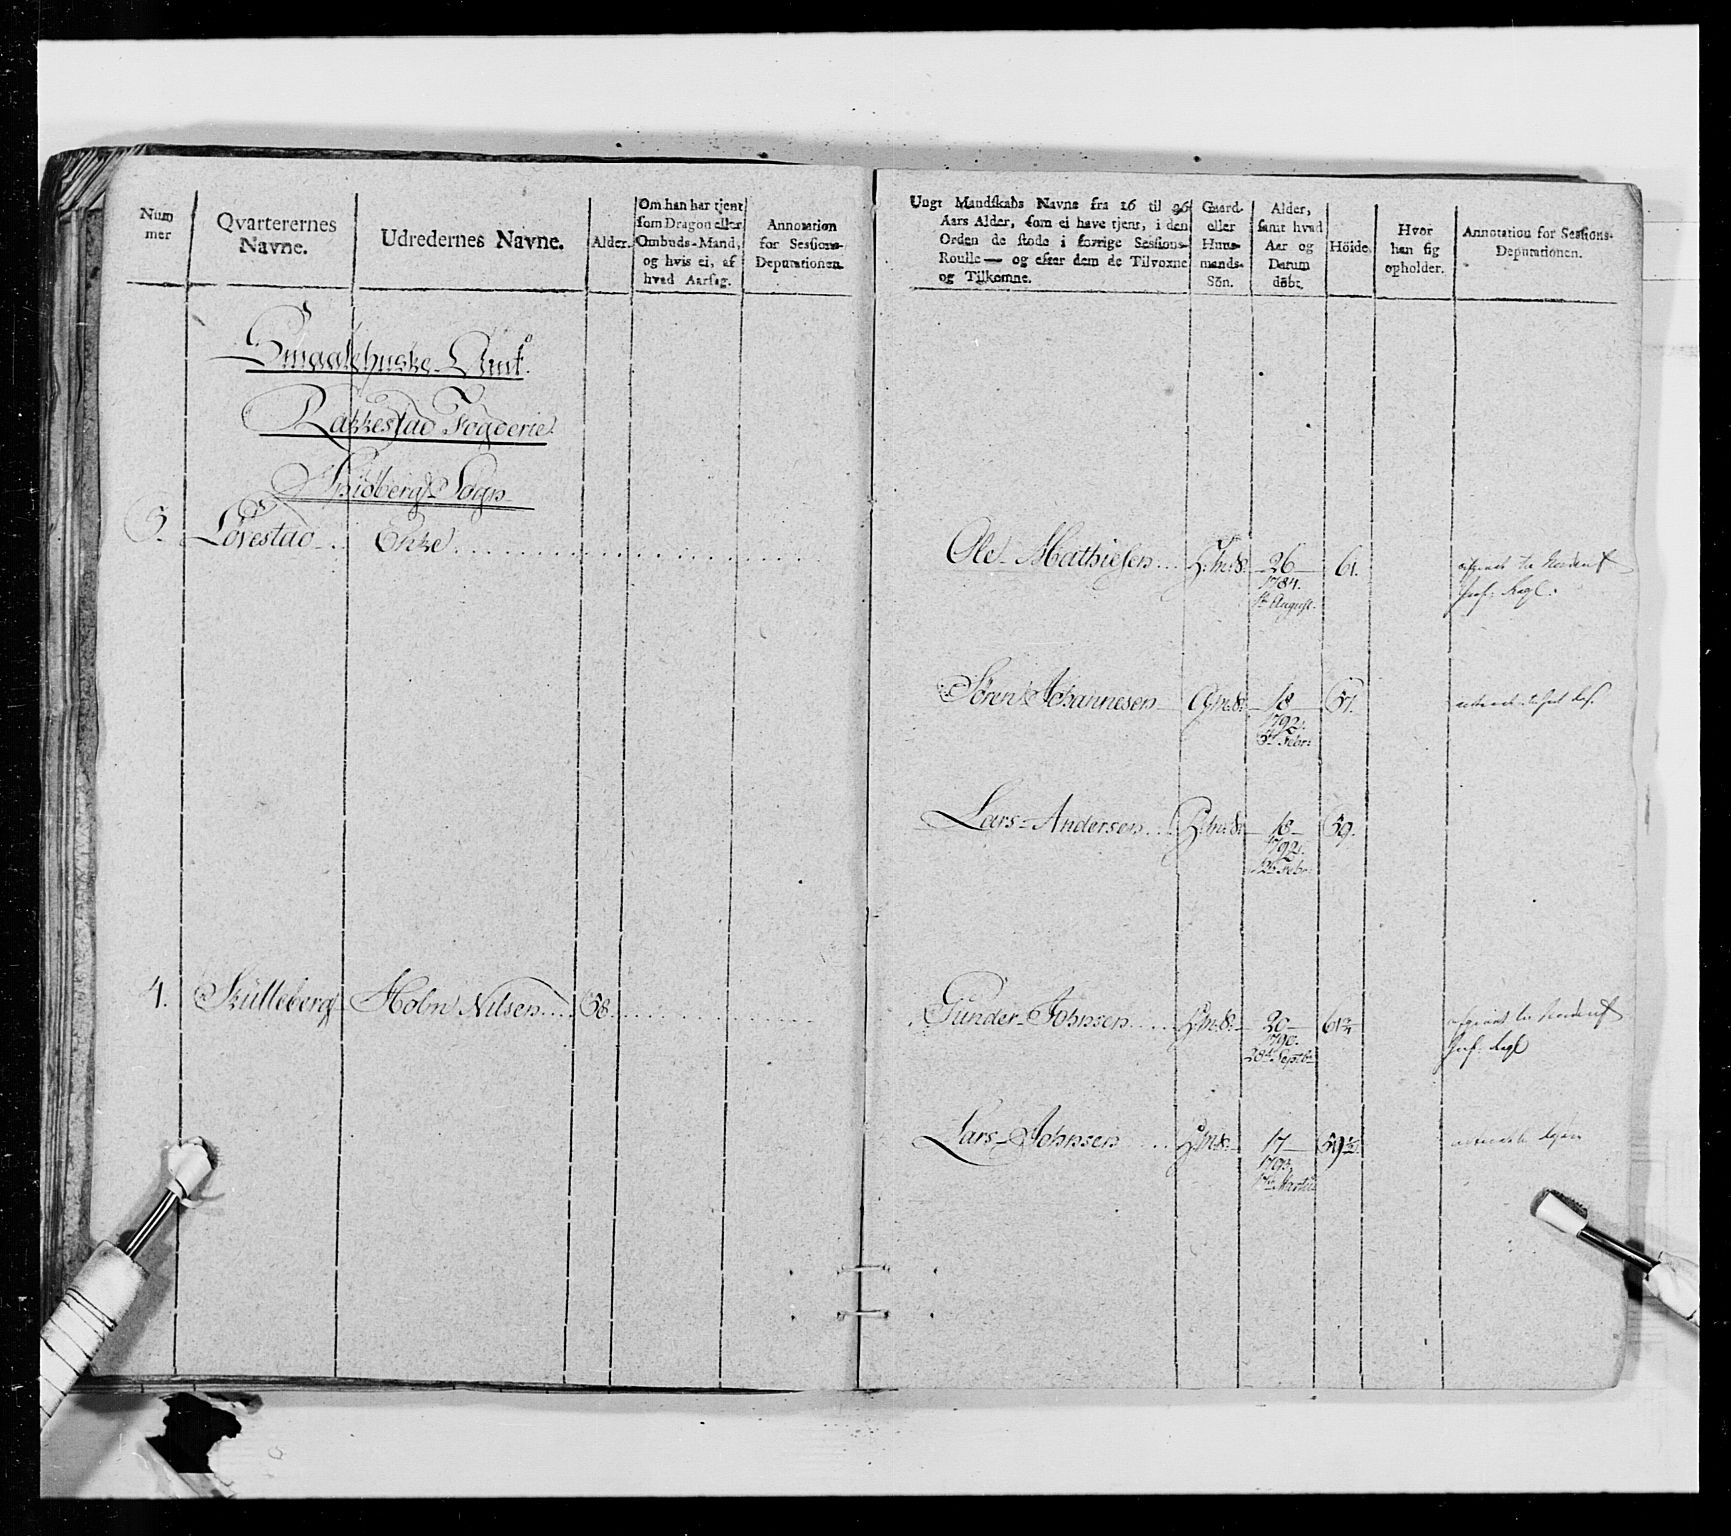 Num
mer
Qvarterernes
Navne.
Udredernes Navne.
Alder.
Om han har tjent
som Dragon eller
Ombuds-Mand,
og hvis ei, af
hvad Aarsag.
Annotation
for Sessions-
Deputationen.
Smaalehnske Amt.
Rakkestad Fogderie.
Spidberg Sogn
3. Løvestad Enke
4. Skulleberg Holm Nilsen 58
Ungt Mandskabs Navne fra 16 til 36
Aars Alder, som ei have tjent, i den
Orden de stode i forrige Sessions-
Roulle — og efter dem de Tilvoxne
og Tilkomne.
Gaard-
eller
Huus-
mands-
Sön.
Alder,
samt hvad
Aar og
Datum
döbt.
Höide.
Hvor
han sig
opholder.
Annotation for Sessions-
Deputationen.
Ole Mathiesen H:m:S: 26 61.
1784.
August.
Inf: Reg:
Søren Johannesen G:m:S: 18 57.
1792.
Febr:
Lars Andersen H:m:S: 18 59.
1792.
Febr:
Gunder Johnsen H:m:S: 20 61¾
1790.
28de Septbr
Inf: Reg:
Lars Johnsen H:m:S: 17 59½
1793.
Martii